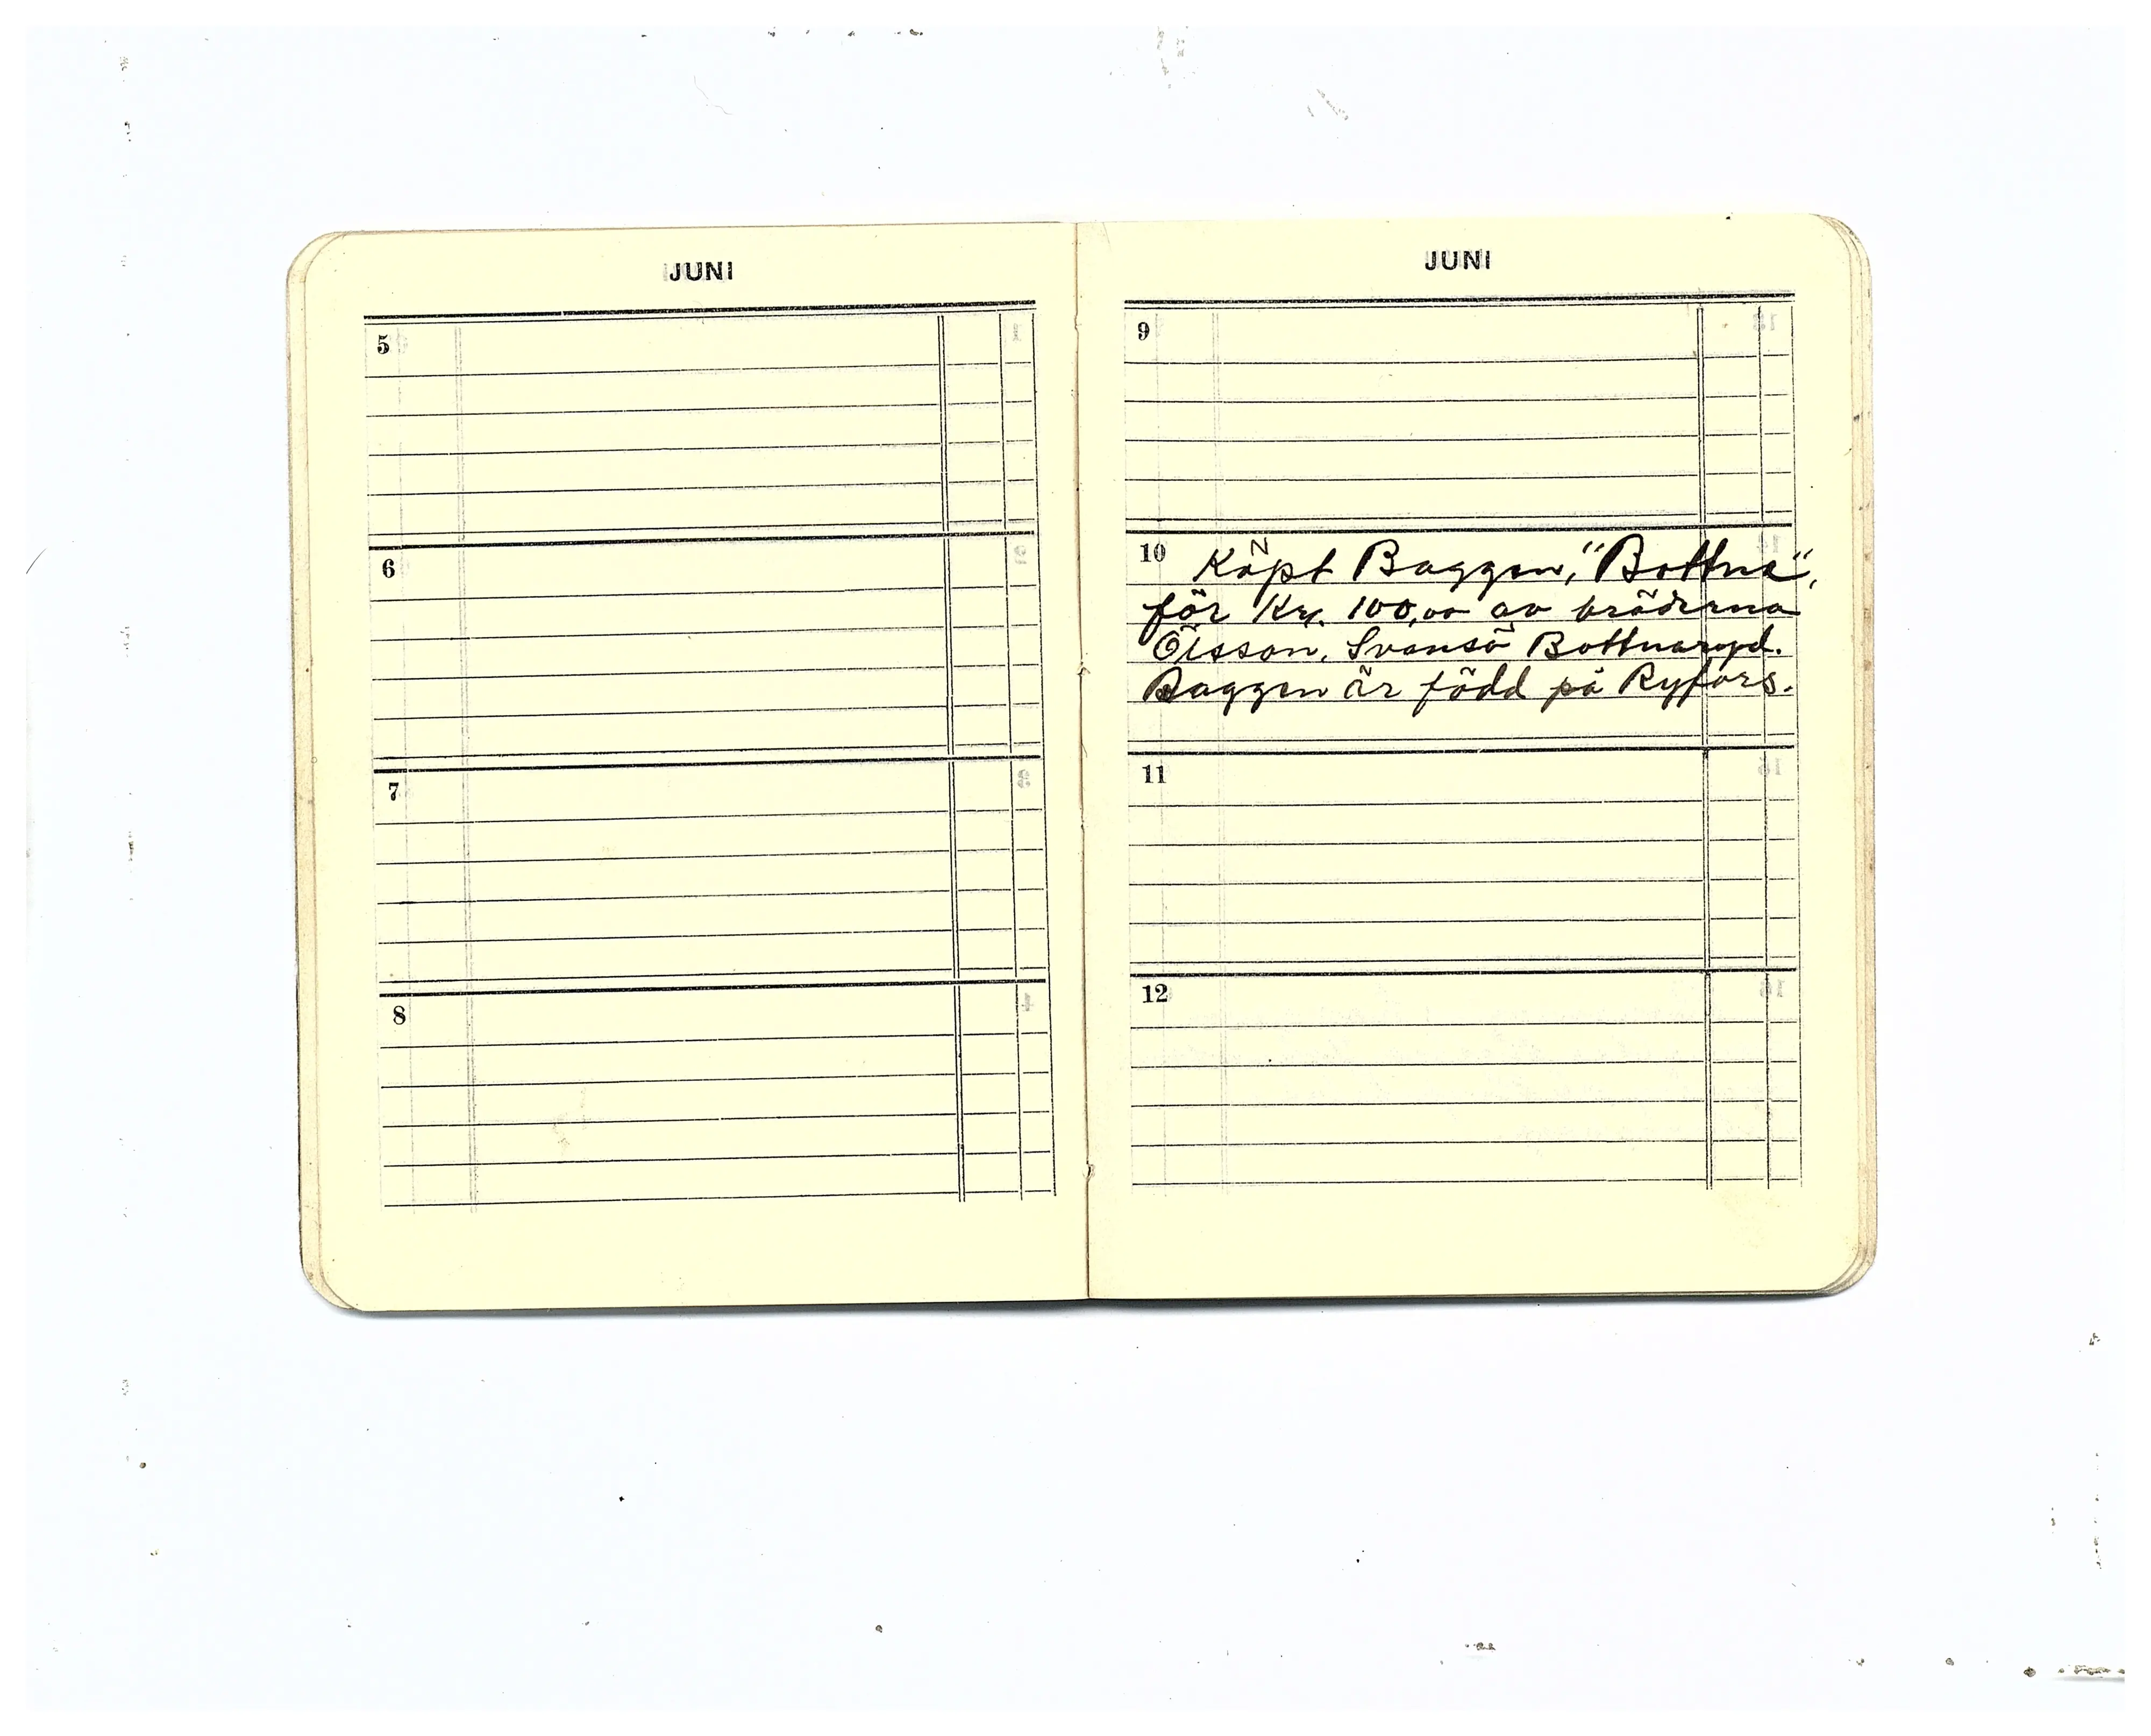 JUNI
5
6
7
8
JUNI
9
10 Köpt Baggen, "Bottna",
för Kr. 100,00 av bröderna
Ölsson, Svansö Bottnaryd.
Baggen är född på Ryfors.
11
12